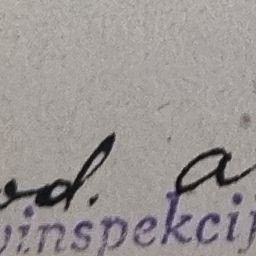 vd. a
vinspekcij